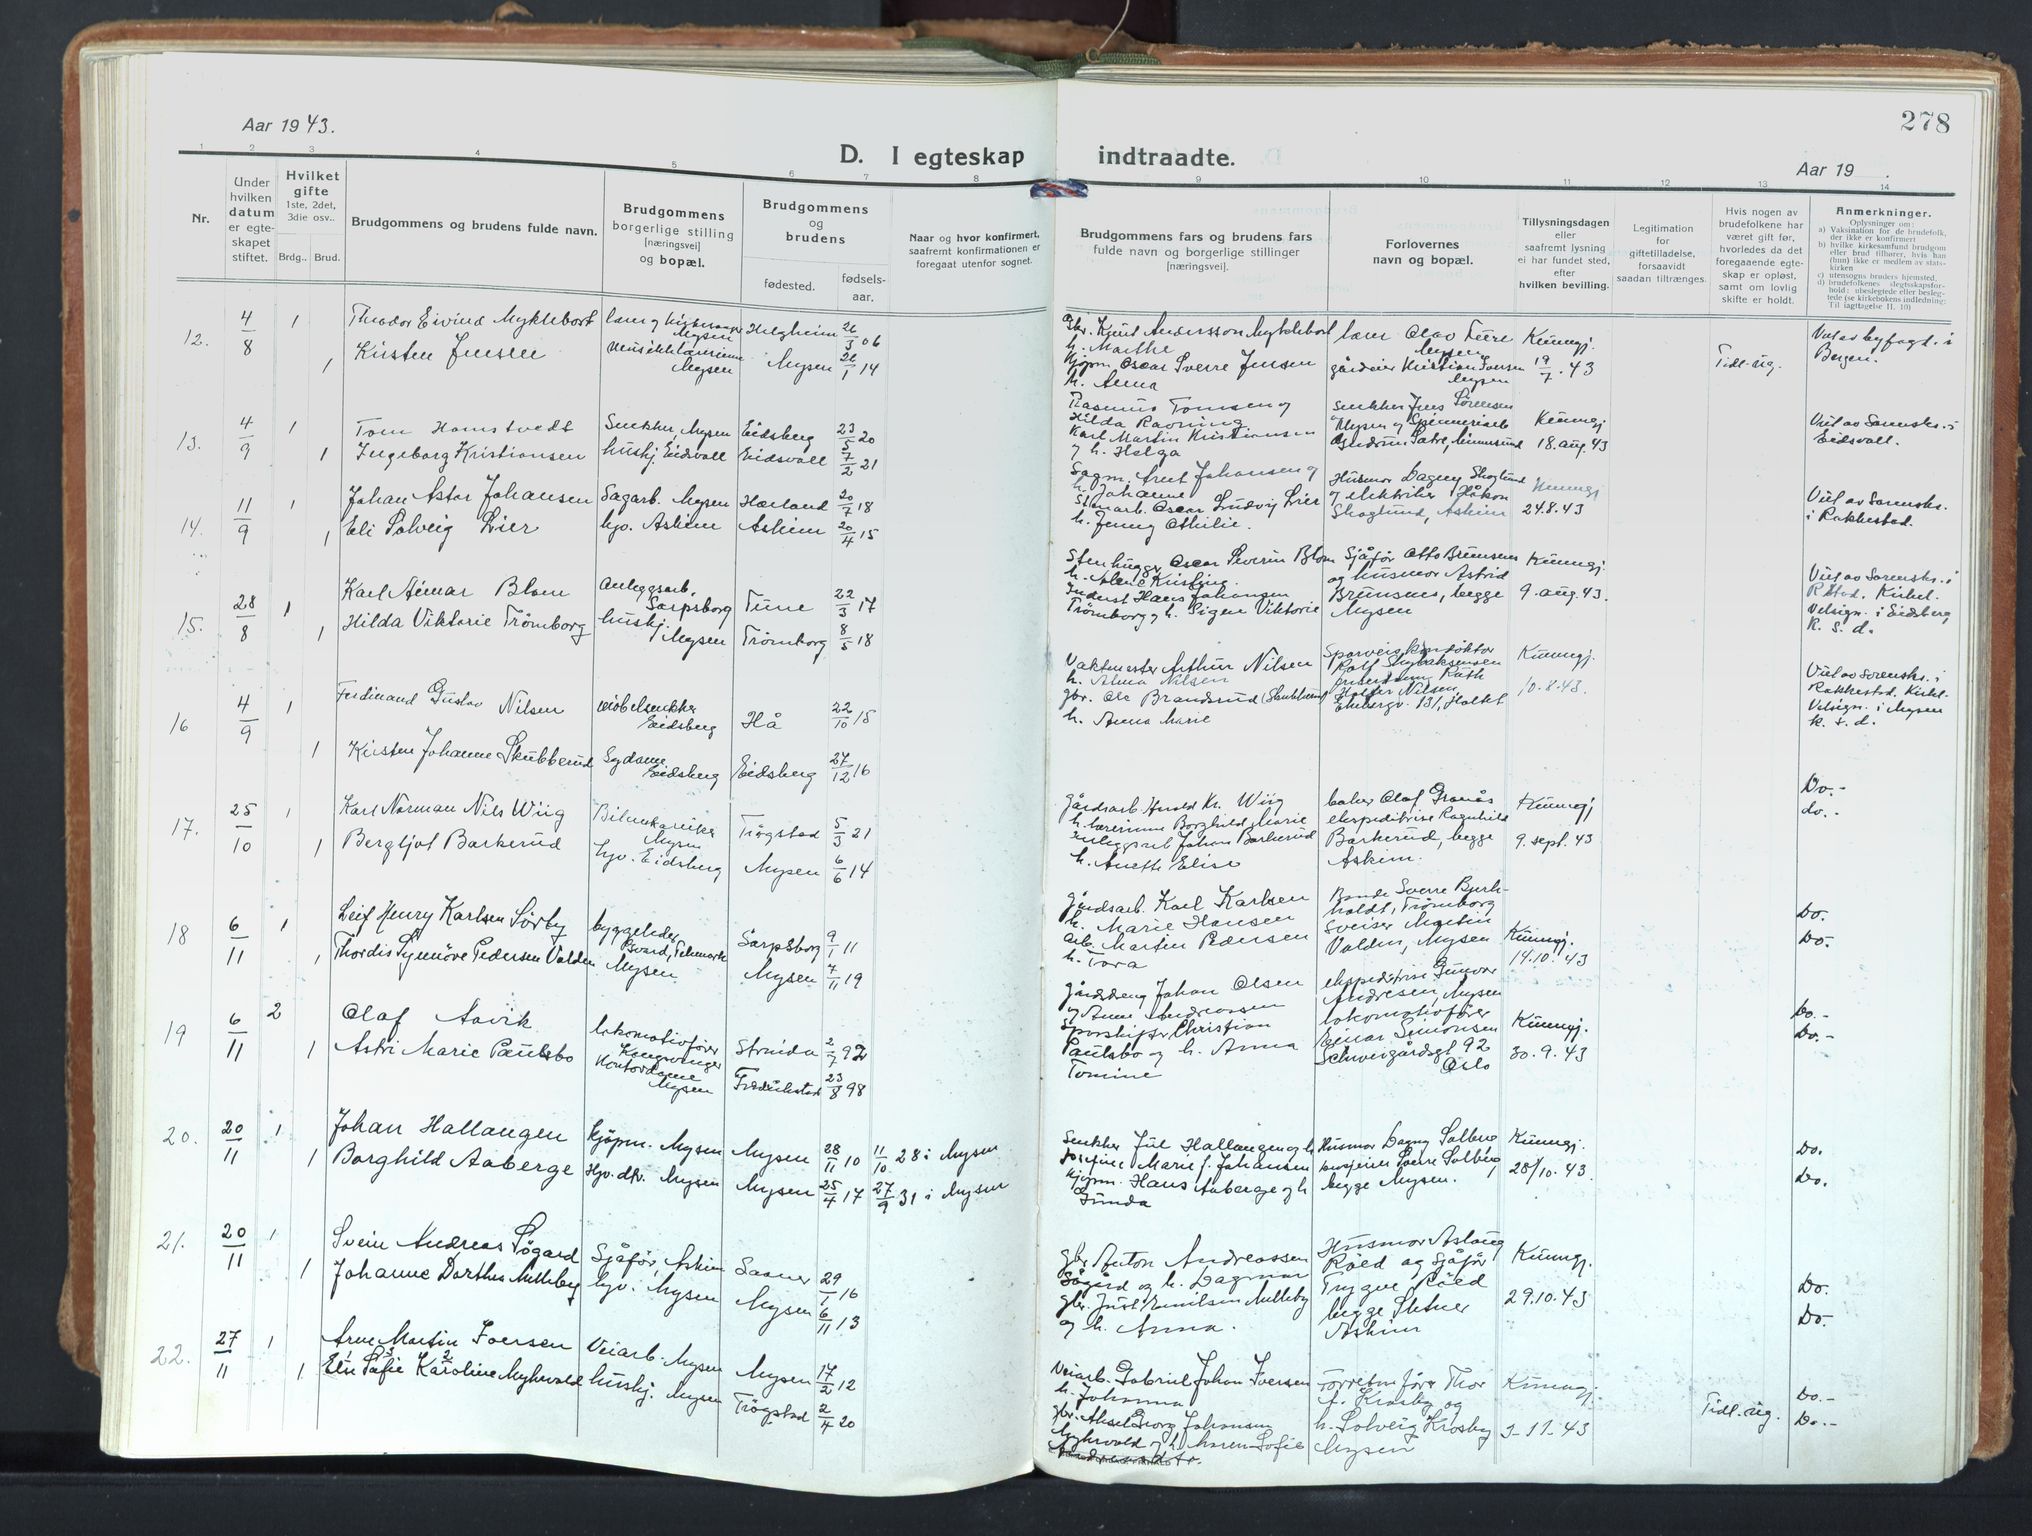 Aar 1943.
D. I egteskap
indtraadte.
278
Aar 19 .
1 2 3 4 5 6 7 8 9 10 11 12 13 14
Nr.
Under hvilken datum er egteskapet stiftet.
Hvilket gifte
1ste, 2det, 3die osv..
Brdg.. Brud.
Brudgommens og brudens fulde navn.
Brudgommens borgerlige stilling [næringsvei] og bopæl.
Brudgommens og brudens
fødested.
fødsels-aar.
Naar og hvor konfirmert, saafremt konfirmationen er foregaat utenfor sognet.
Brudgommens fars og brudens fars fulde navn og borgerlige stillinger [næringsvei].
Forlovernes navn og bopæl.
Tillysningsdagen eller saafremt lysning ei har fundet sted, efter hvilken bevilling.
Legitimation for giftetilladelse, forsaavidt saadan tiltrænges.
Hvis nogen av brudefolkene har været gift før, hvorledes da det foregaaende egteskap er opløst, samt om lovlig skifte er holdt.
Anmerkninger.
Oplysninger om:
a) Vaksination for de brudefolk, der ikke er konfirmert
b) hvilke kirkesamfund brudgom eller brud tilhører, hvis han (hun) ikke er medlem av statskirken
c) utensogns bruders hjemsted.
d) brudefolkenes slegtsskapsforhold: ubeslegtede eller beslegtede (se kirkebokens indledning: Til iagttagelse II. 10)
12. 4/8 1 Theodor Eivind Myklebost Helgheim 26/3 06
1 Kirsten Jensen Musikklærerinne Mysen Mysen 26/1 14
Gbr. Knut Andersson Myklebost
h. Marthe
Kjøpm. Oscar Sverre Jensen
h. Anna
gårdeier Kristian Iversen Mysen
Kunngj. 19/7. 43
Tidl. ug.
Viet av byfogt. i Bergen.
13. 4/9 1 Tom Homstvedt Snekker Mysen Eidsberg 23/5 20
1 Ingeborg Kristiansen hushj. Eidsvoll Eidsvoll 7/2 21
Rasmus Tomsen og
Hilda Ravning
Karl Martin Kristiansen
og h. Helga
Snekker Jens Sørensen
Kunngj 18. aug. 43
Viet av Sorensk. i Eidsvoll.
14. 11/9 1 Johan Astor Johansen Sagarb. Mysen Hærland 20/7 18
1 Eli Solveig Lier hjv. Askim Askim 20/4 15
Sagm. Arnt Johansen og
h. Johanne
Stenarb. Oscar Ludvig Lier
h. Jenny Othilie.
Husmor Dagny Skoglund
og elektriker Håkon
Skoglund, Askim
Kunngj 24.8.43
Viet av Sorensk. i Rakkestad.
15. 28/8 1 Karl Aimar Blom Anleggsarb. Sarpsborg Tune 22/3 17
1 Hilda Viktorie Trømborg hushj. Mysen Trømborg 8/5 18
Stenhugger Oscar Severin Blom
Inderst Hans Johansen
Trømborg og h. Signe Viktorie
Sjåfør Otto Brunsnes
og husmor Astrid
Brunsnes, begge
Mysen
Kunngj. 9. aug. 43.
Viet av Sorensk. i Rkstad. Kirkel. Velsign. i Eidsberg k. s. d.
16 4/9 1 Ferdinand Gustav Nilsen møbelsnekker Eidsberg Hå 22/10 15
1 Kirsten Johanne Skubberud Sydame Eidsberg Eidsberg 27/12 16
Vaktmester Arthur Nilsen
h. Alma Nilsen
gbr. Ole Brandsrud (Skubberud)
h. Anna Marie
Kunngj. 10.8.43.
Viet av Sorensk. i Rakkestad. Kirkel. Velsign. i Mysen k. s. d.
17. 25/10 1 Karl Norman Nils Wiig Mysen Trøgstad 5/3 21
1 Bergljot Barkerud hjv. Eidsberg Mysen 6/6 14
Gårdsarb. Harald Kr. Wiig
h. lærerinne Borghild Marie
Anleggsarb Johan Barkerud
h. Anette Elise
baker Olaf Granås
ekspeditrise Ragnhild
Barkerud, begge
Askim.
Kunngj 9. sept. 43
Do.-
do.-
18 6/11 1 Leif Henry Karlsen Sørby byggeleder Telemark Sarpsborg 9/1 11
1 Thordis Synnøve Pedersen Valden Mysen Mysen 7/11 19
Gårdsarb. Karl Karlsen
h. Marie Hansen
arb. Martin Pedersen
h. Tora
Bonde Sverre Bjerk-
holdt, Trømborg
Sveiser Martin
Valden, Mysen
Kunngj. 14.10.43
Do.
Do.
19 6/11 2 Olaf Aavik lokomotivfører Kongsvinger Strinda 2/7 92
1 Astri Marie Paulsbo Kontordame Mysen Fredrikstad 23/8 98
Gårdsdreng Johan Olsen
og Anne Andreassen
Sporskifter Christian
Paulsbo og h. Anna
Tomine
ekspeditrise Gunvor
Andresen, Mysen
lokomotivfører
Einar Simonsen
Schweigårdsgt 92
Oslo
Kunngj. 30. 9. 43
Do.-
Do.-
20. 20/11 1 Johan Hallangen kjøpm. Mysen Mysen 28/11 10 11/10 28 i Mysen
1 Borghild Aaberge Hjv. dtr. Mysen Mysen 25/4 17 27/9 31 i Mysen
Snekker Jul Hallangen og h
Josefine Marie f. Johansen
Kjøpm. Hans Aaberge og h
Gunda
Husmor Dagny Solberg
Sverre Solberg
begge Mysen.
Kunngj. 28/10. 43
Do.
Do.
21. 20/11 1 Svein Andreas Søgard Sjåfør, Askim Saaner 29/1 16
1 Johanne Dorthea Melleby hjv. Mysen Mysen 6/11 13
gbr. Anton Andreassen
Søgård og h. Dagmar
gbr. Just Emilsen Melleby
og h. Anna.
Husmor Aslaug
Røed og Sjåfør
Trygve Røed
begge
Askim
Kunngj. 29.10.43
Do.
Do.
22. 27/11 1 Arne Martin Iversen Veiarb. Mysen Mysen 17/2 12
1 Elin Sofie Karoline Myhrvold hushj. Mysen Trøgstad 2/4 20
Veiarb. Gabriel Johan Iversen
h. Johanna
gbr. Aksel Georg Johansen
Myhrvold og h. Maren Sofie
Forretn.fører Thor
f. Krosby og
h. Solveig Krosby
Mysen
Kunngj. 3-11-43
Tidl. ug.
Do.-
Do.-